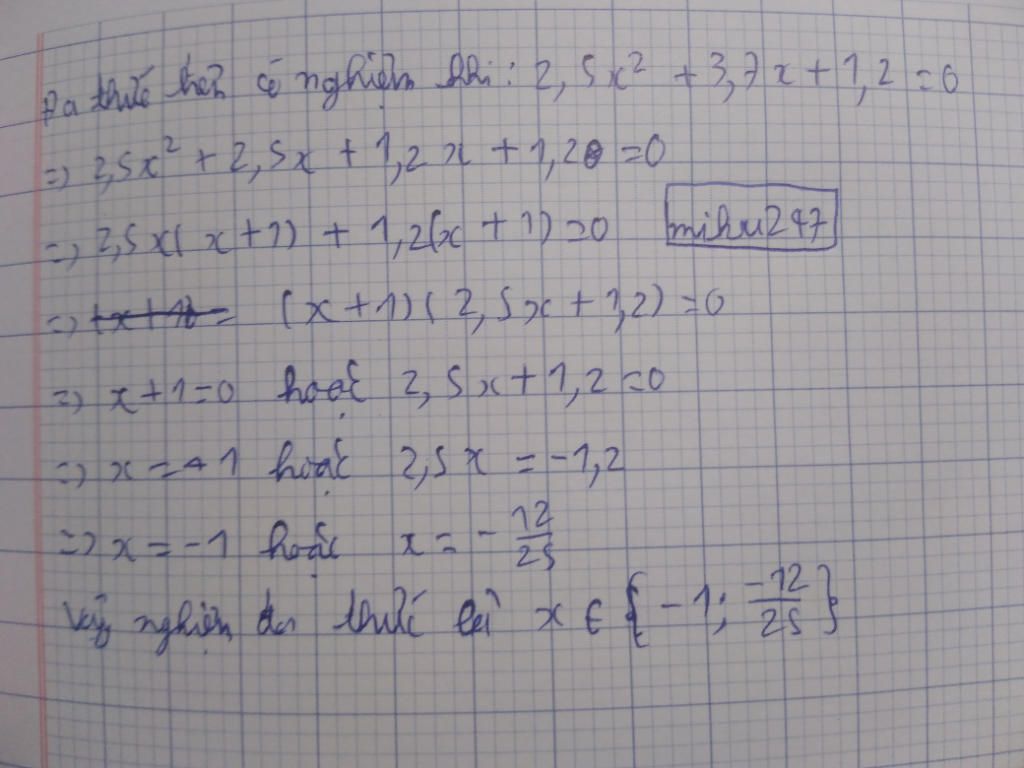 Đa thức trên có nghiệm khi: 2,5x² + 3,7x + 1,2 = 0
=> 2,5x² + 2,5x + 1,2x + 1,2 = 0
=> 2,5x(x + 1) + 1,2(x + 1) = 0 mihu247
=> (x + 1)(2,5x + 1,2) = 0
=> x + 1 = 0 hoặc 2,5x + 1,2 = 0
=> x = -1 hoặc 2,5x = -1,2
=> x = -1 hoặc x = -12/25
Vậy nghiệm đa thức là x ∈ {-1; -12/25}